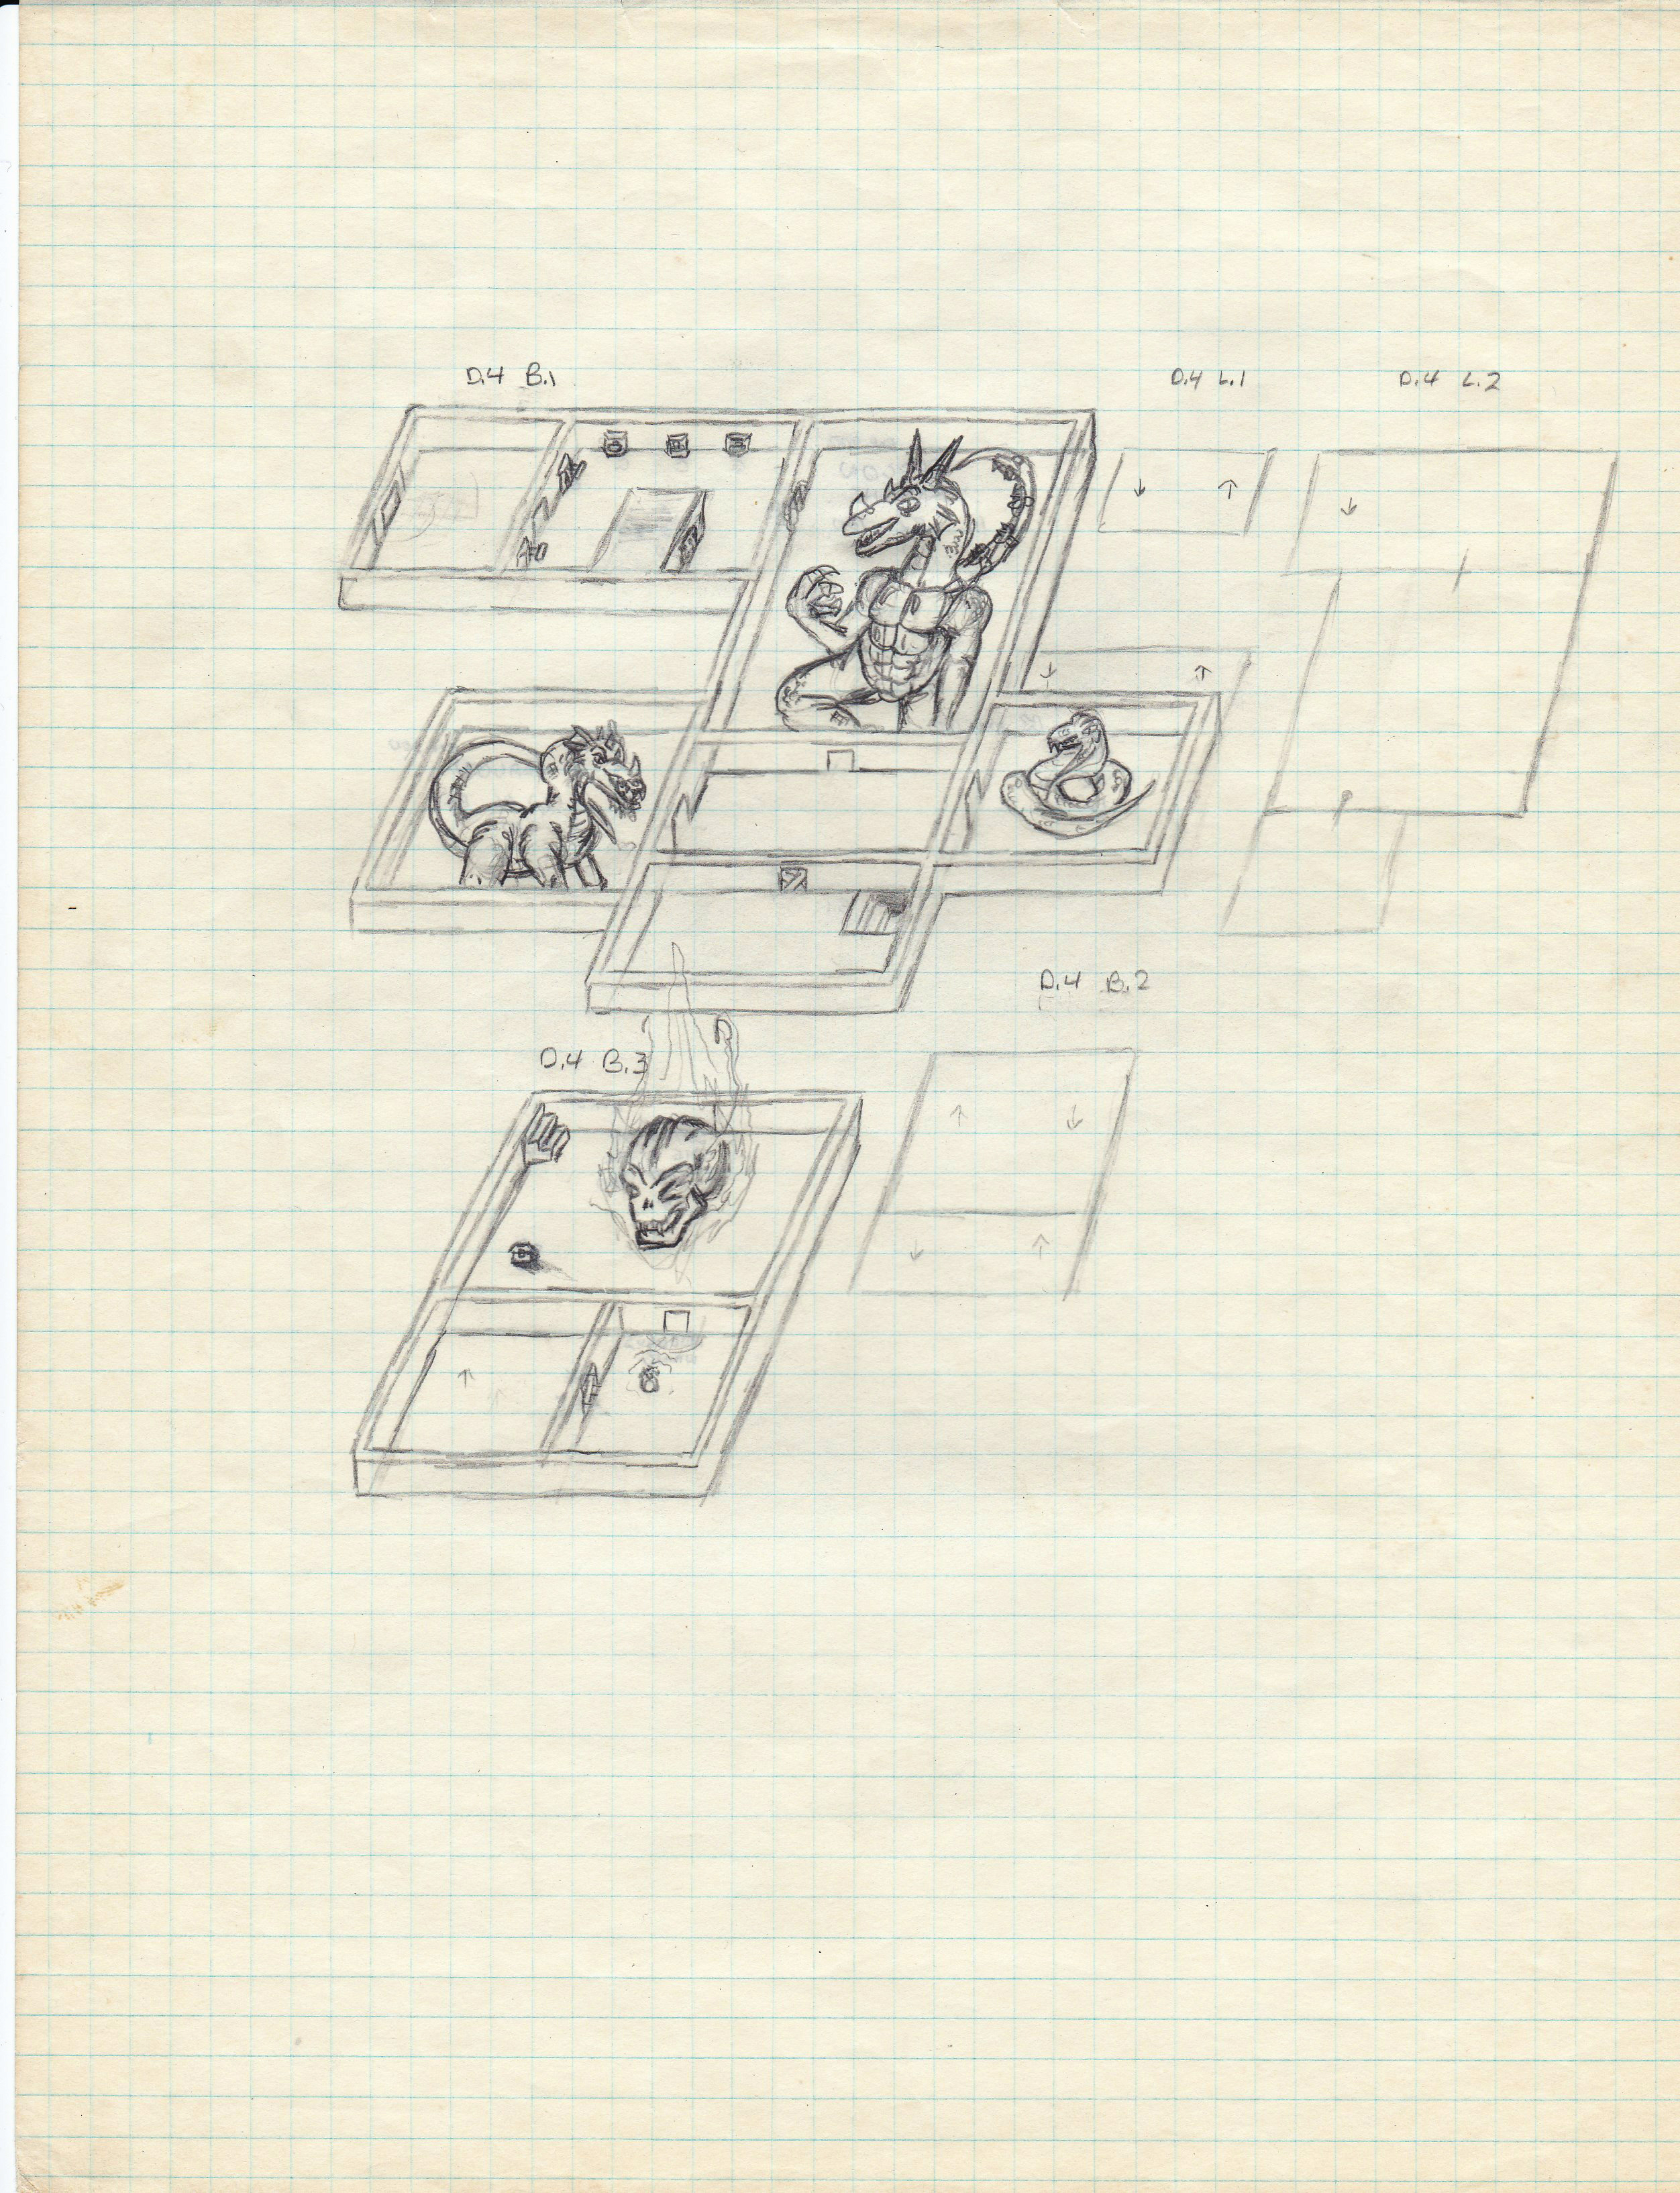 D.4 B.1
D.4 L.1
D.4 L.2
D.4 B.2
D.4 B.3